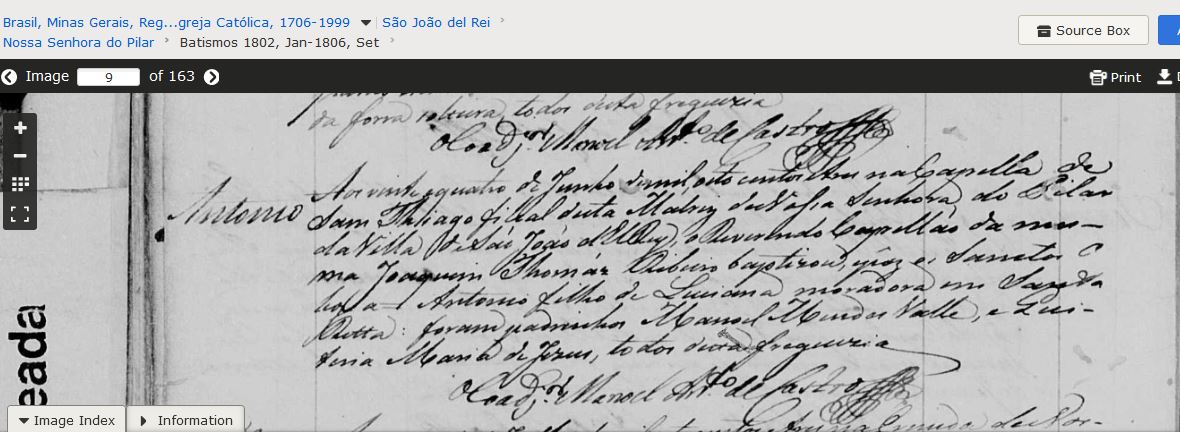 Brasil, Minas Gerais, Reg...greja Católica, 1706-1999 São João del Rei
Nossa Senhora do Pilar Batismos 1802, Jan-1806, Set
Source Box
Image 9 of 163 Print
da forra solteira, todos desta freguezia
O Coadj.or Manoel Ant.o de Castro
Antonio
Aos vinte e quatro de Junho de mil oito centos e tres na Capella de
Sam Thiago filial desta Matriz de Nossa Senhora do Pilar
da Villa de São João d'ElRey, o Reverendo Capellão da mes-
ma Joaquim Thomáz Ribeiro baptizou, e pôz os Sanctos
a Antonio filho de Luciana moradora em
Ritta: foram padrinhos Manoel Mendes Valle, e Qui-
teria Maria de Jezus, todos desta freguezia
O Coadj.or Manoel Ant.o de Castro
eada
Image Index Information